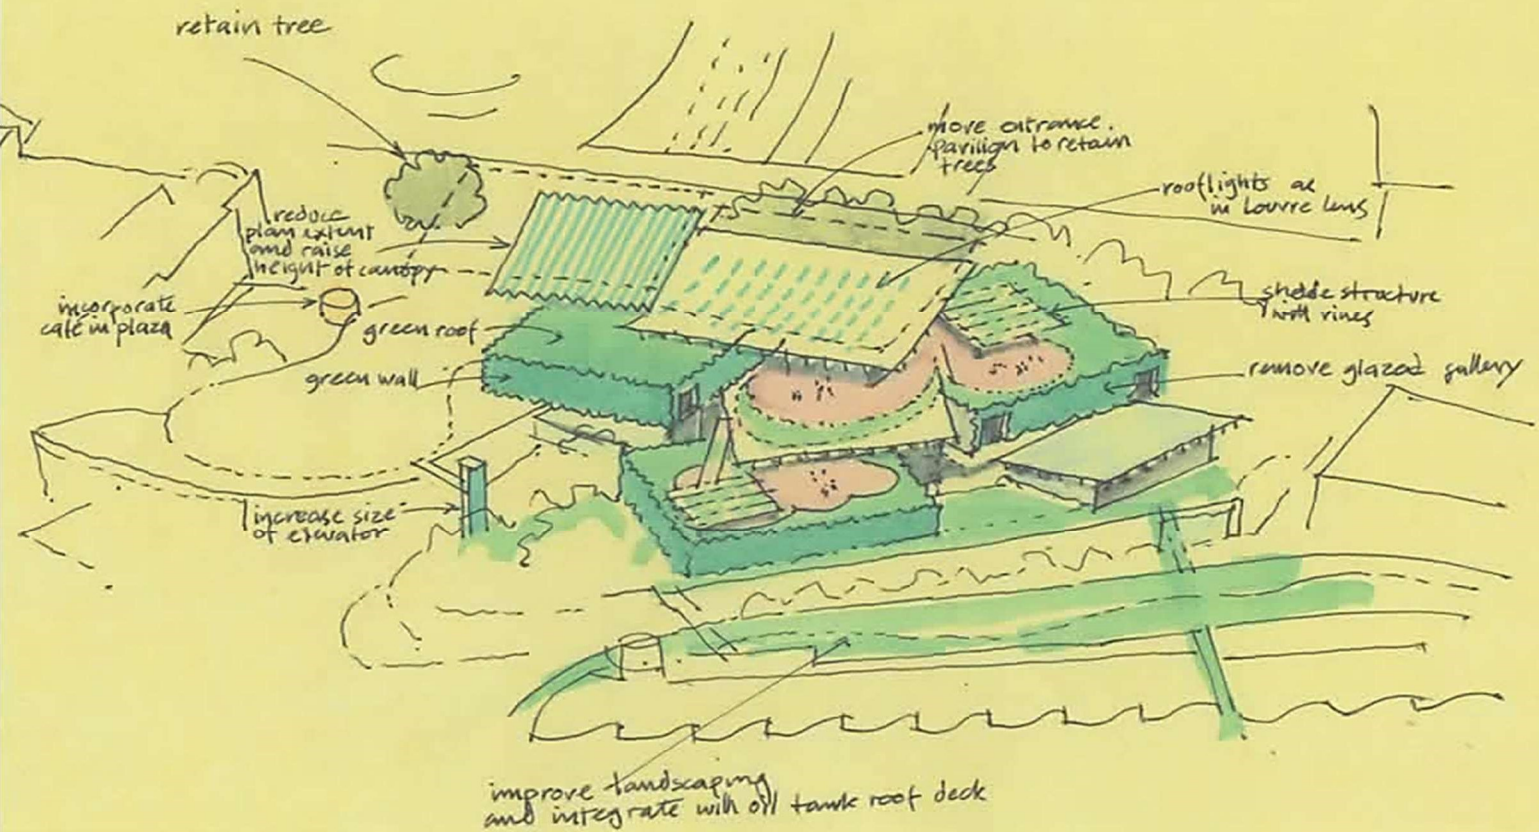 retain tree
move entrance
pavilion to retain
trees
rooflights as
in Louvre Lens
reduce
plan extent
and raise
height of canopy
incorporate
café in plaza
green roof
green wall
shade structure
with vines
remove glazed gallery
increase size
of elevator
improve landscaping
and integrate with oil tank roof deck